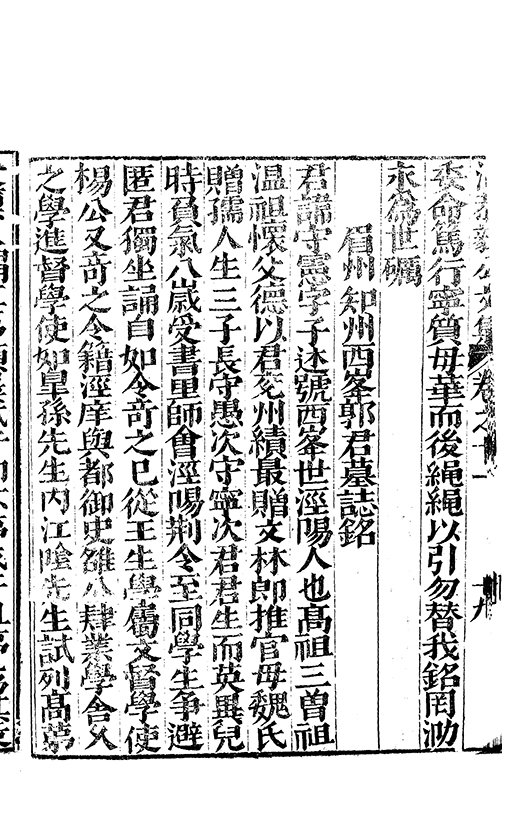 委命篤行寧質毋華而後繩繩以引勿替我銘罔泐
永為世礪
眉州知州西峯郭君墓誌銘
君諱守憲字子述號西峯世涇陽人也高祖三曾祖
温祖懷父德以君兖州績最贈文林郎推官母魏氏
贈孺人生三子長守愚次守寧次君君生而英異兒
時負氣八歲受書里師會涇陽荆令至同學生爭避
匿君獨坐誦自如令奇之已從王生學屬文督學使
楊公又奇之令籍涇庠與都御史雒公肄業學舍久
之學進督學使如皇孫先生内江陰先生試列高第